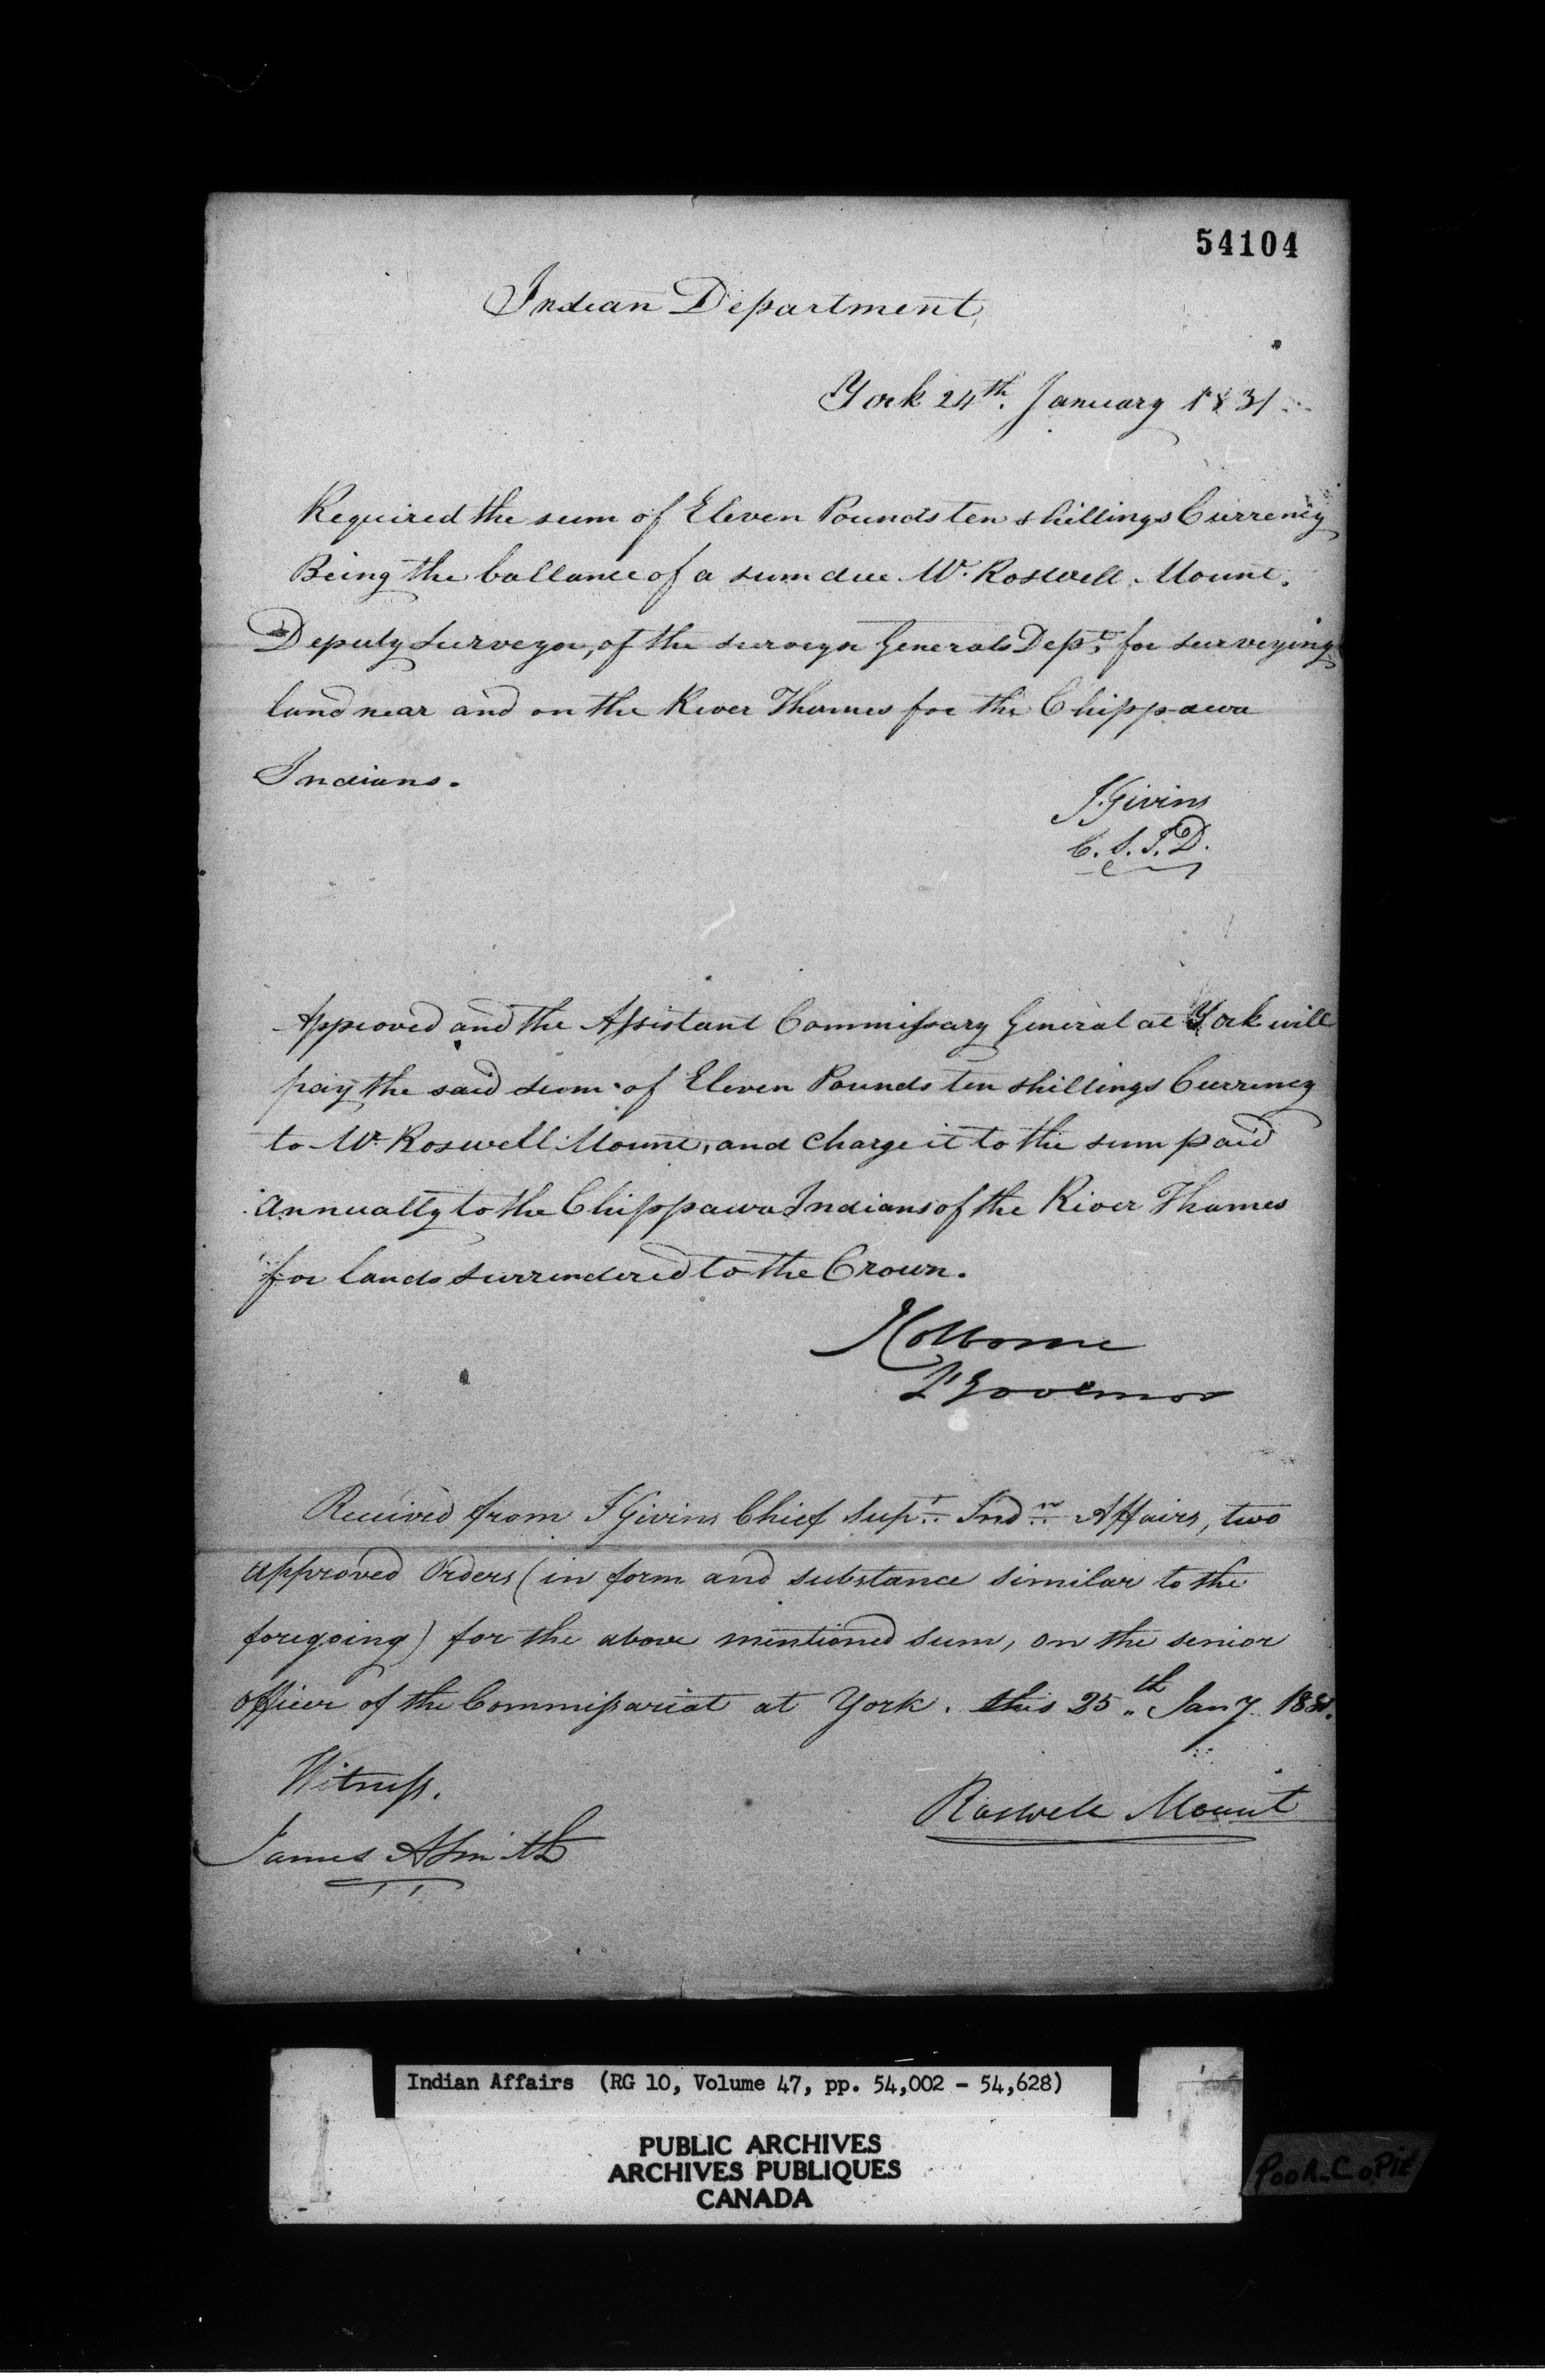 54104
Indian Department,
York 24th. January 1831
Required the sum of Eleven Pounds ten shillings Currency
Being the ballance of a sum due Mr. Roswell Mount.
Deputy Surveyor, of the surveyor Generals Dept. for surveying
land near and on the River Thames for the Chippawa
Indians.
J. Givins
C. S. I. D.
Approved and the Assistant Commissary General at York will
pay the said sum of Eleven Pounds ten shillings Currency
to Mr. Roswell Mount, and charge it to the sum paid
annually to the Chippawa Indians of the River Thames
for lands surrendered to the Crown.
J Colborne
Lt Governor
Received from J Givins Chief Supt. Indn. Affairs, two
approved Orders (in form and substance similar to the
foregoing) for the above mentioned sum, on the senior
officer of the Commissariat at York. this 25th Jany. 1831.
Witness.
Roswell Mount
James A Smith
Indian Affairs (RG 10, Volume 47, pp. 54,002 - 54,628)
PUBLIC ARCHIVES
ARCHIVES PUBLIQUES
CANADA
POOR COPIE